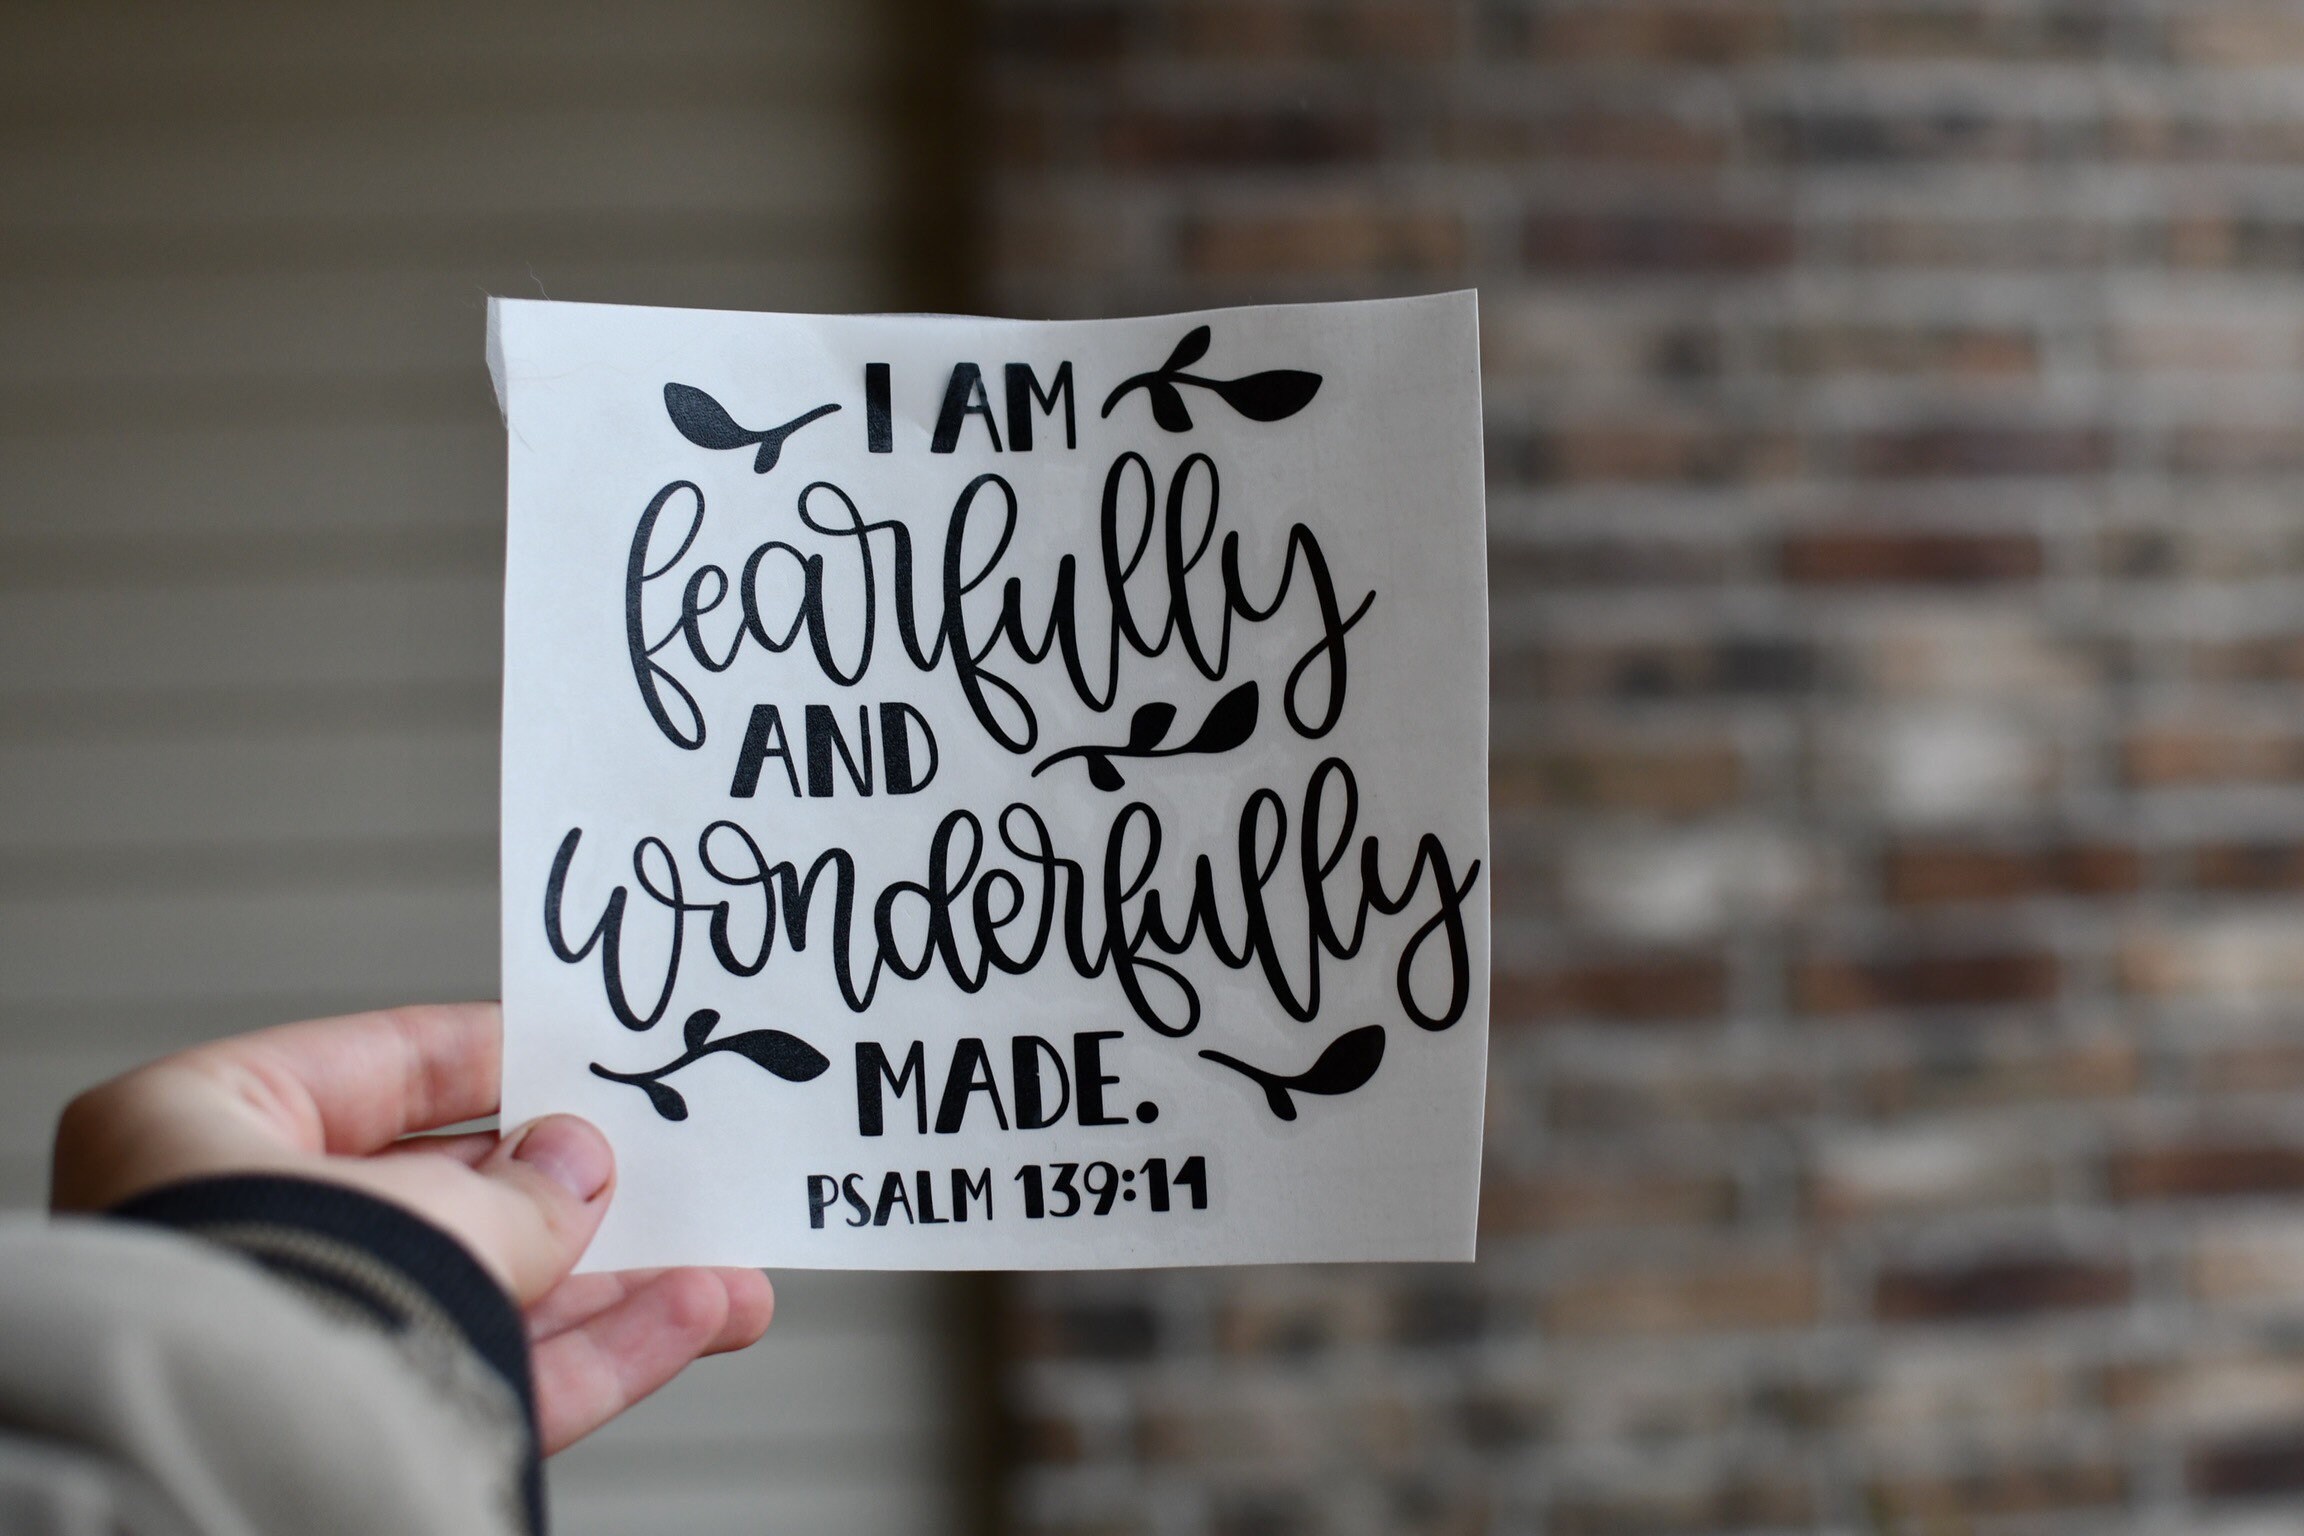 I AM
fearfully
AND
wonderfully
MADE.
PSALM 139:14